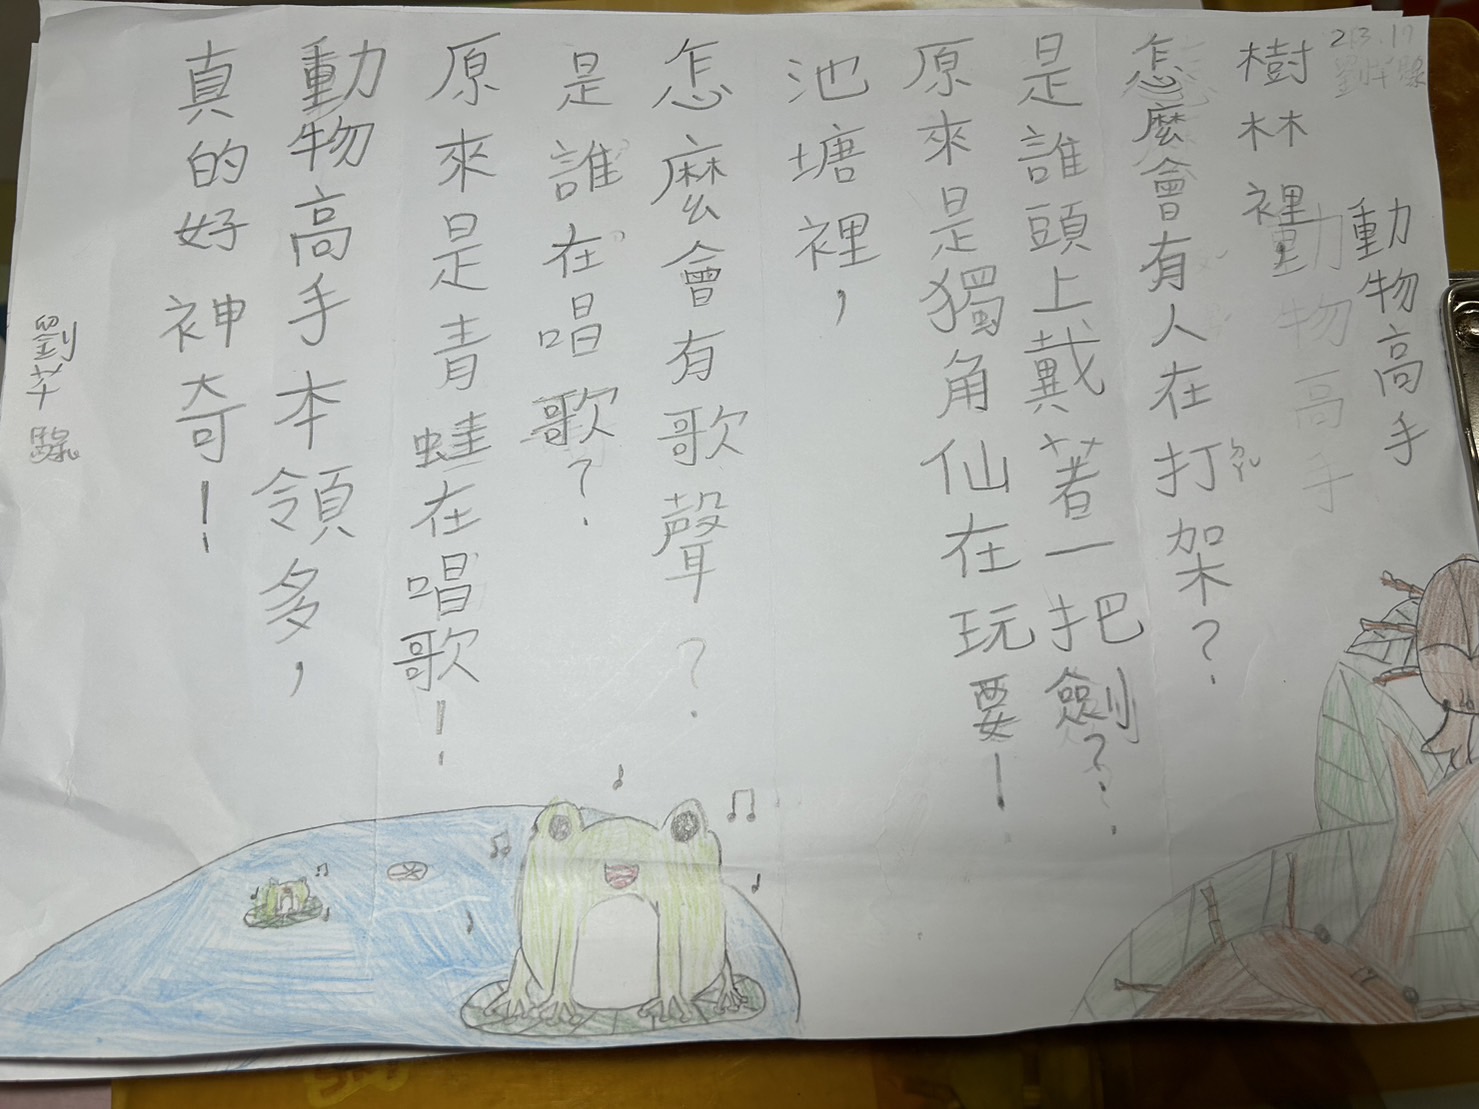 213.17
動物高手
樹林裡,
怎麼會有人在打架?
ㄉㄚˇ
是誰頭上戴著一把劍?
原來是獨角仙在玩耍!
池塘裡,
怎麼會有歌聲?
是誰在唱歌?
原來是青蛙在唱歌!
動物高手本領多,
真的好神奇!
劉芊